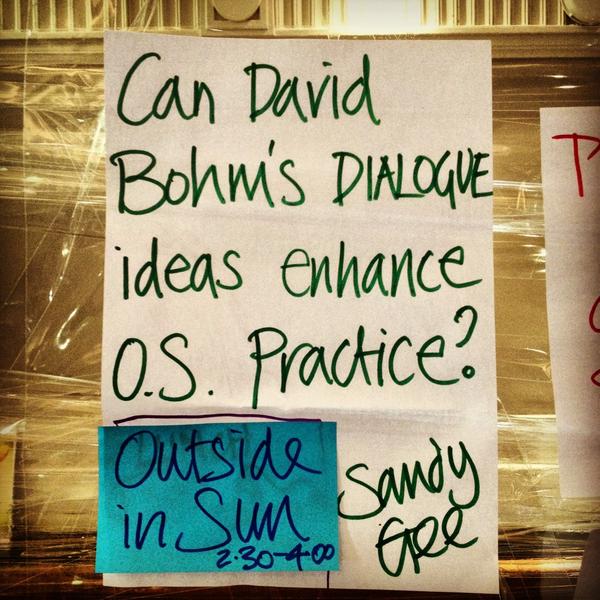 Can David
Bohm's DIALOGUE
ideas enhance
O.S. Practice?
Outside
in Sun
2.30-4.00
Sandy
Gee